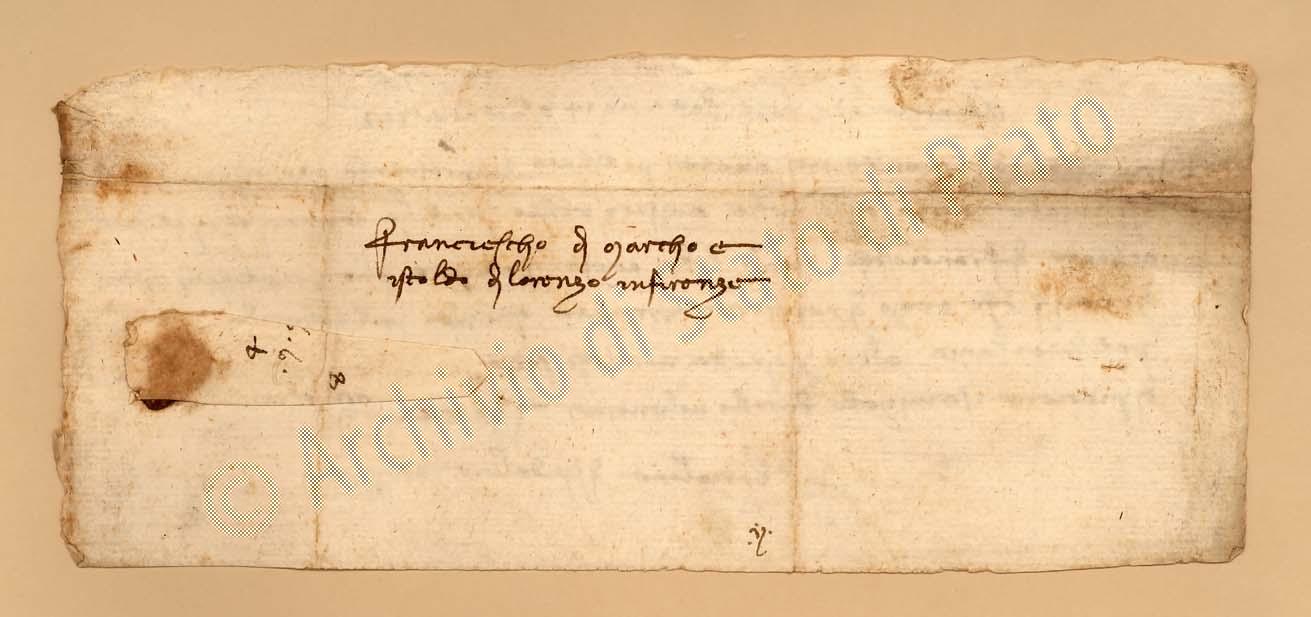 Franciescho di Marcho e
istoldo di lorenzo in firenze
© Archivio di Stato di Prato